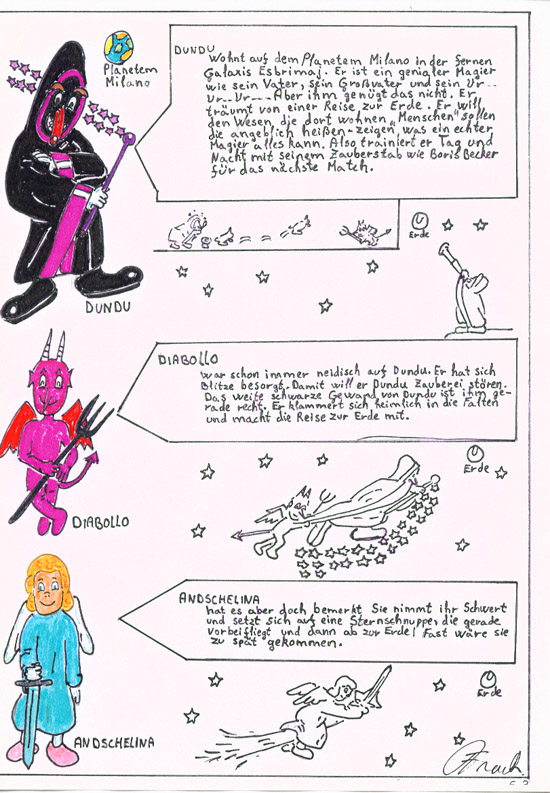 Planetem
Milano
DUNDU
Wohnt auf dem Planetem Milano in der fernen
Galaxis Esbrimaj. Er ist ein genialer Magier
wie sein Vater, sein Großvater und sein Ur--
Ur--Ur--- Aber ihm genügt das nicht. Er
träumt von einer Reise zur Erde. Er will
den Wesen, die dort wohnen „Menschen" sollen
die angeblich heißen-zeigen, was ein echter
Magier alles kann. Also trainiert er Tag und
Nacht mit seinem Zauberstab wie Boris Becker
für das nächste Match.
Erde
DUNDU
DIABOLLO
war schon immer neidisch auf Dundu. Er hat sich
Blitze besorgt. Damit will er Dundu Zauberei stören.
Das weite schwarze Gewand von Dundu ist ihm ge-
rade recht. Er klammert sich heimlich in die Falten
und macht die Reise zur Erde mit.
Erde
DIABOLLO
ANDSCHELINA
hat es aber doch bemerkt Sie nimmt ihr Schwert
und setzt sich auf eine Sternschnuppe, die gerade
vorbeifliegt und dann ab zur Erde! Fast wäre sie
zu spät gekommen.
Erde
ANDSCHELINA